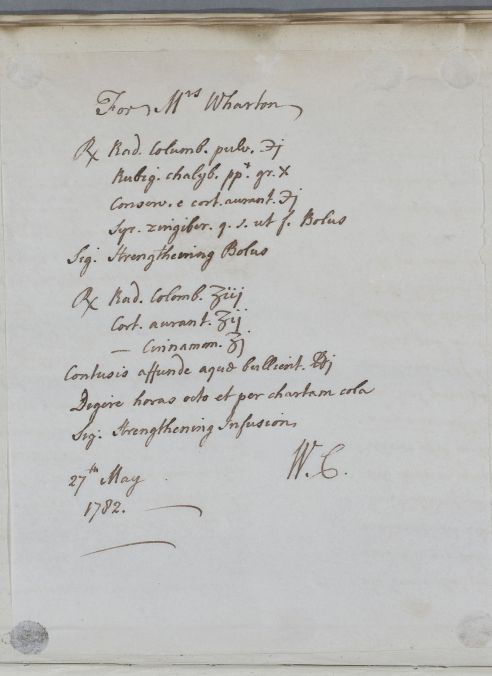 For Mrs Wharton
℞ Rad. Columb. pulv. ℈j
Rubig. chalyb. ppt. gr. x
Conserv. e cort. aurant. ℈j
Syr. zingiber. q. s. ut f. Bolus
Sig. Strengthening Bolus
℞ Rad. Colomb. ʒiij
Cort. aurant. ʒij
— Cinnamon. ʒj
Contusis affunde aquæ bullient. ℔j
Digere horas octo et per chartam cola
Sig. Strengthening Infusion
W. C.
27th May
1782.